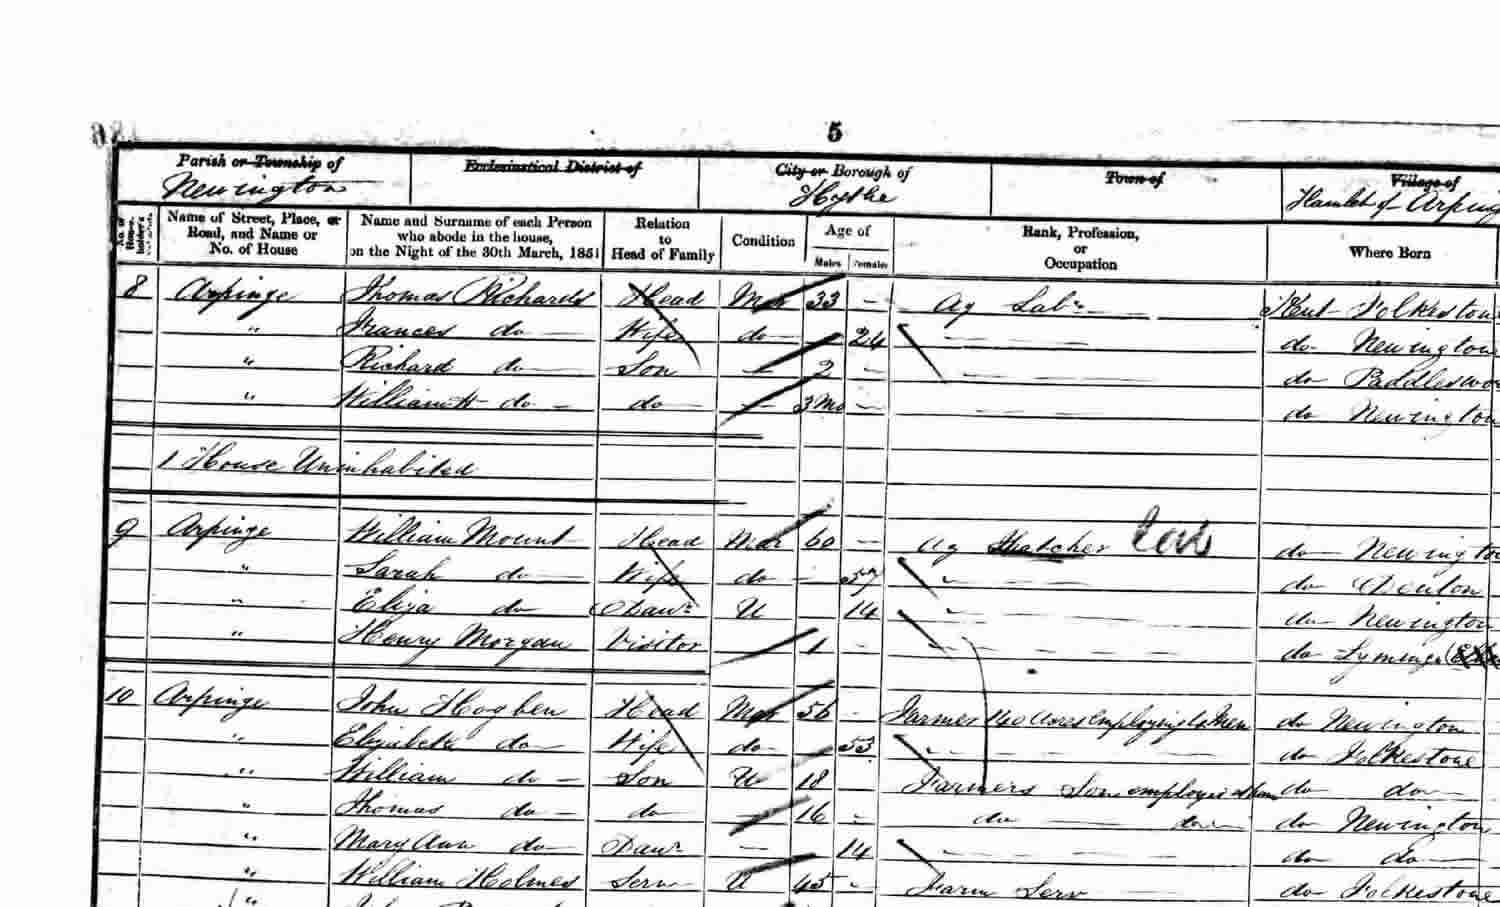 5
Parish or Township of Ecclesiastical District of City or Borough of Town of Village of
Newington Hythe Hamlet of Arping
Name of Street, Place, or Road, and Name or No. of House Name and Surname of each Person who abode in the house, on the Night of the 30th March, 1851 Relation to Head of Family Condition Age of Males Females Rank, Profession, or Occupation Where Born
8 Arpinge Thomas Richards Head Mar 33 – Ag Labr Kent Folkestone
" Frances do Wife do – 24 – do Newington
" Richard do Son – 2 – do Paddleswo
" William H do – do – 3 Mo – do Newington
1 House Uninhabited
9 Arpinge William Mount Head Mar 60 – Ag Thatcher Lab do Newington
" Sarah do Wife do – 57 " do Denton
" Eliza do Daur U 14 " do Newington
" Henry Morgan Visitor – 1 – " do Lyminge
10 Arpinge John Hogben Head Mar 56 – Farmer Acres employing Men do Newington
" Elizabeth do Wife do 53 " do Folkestone
" William do – Son U 18 Farmers Son employed do do
" Thomas do do – 16 – do do do Newington
" Mary Ann do Daur – 14 – do do
" William Holmes Serv U 45 – Farm Serv do Folkestone
" John